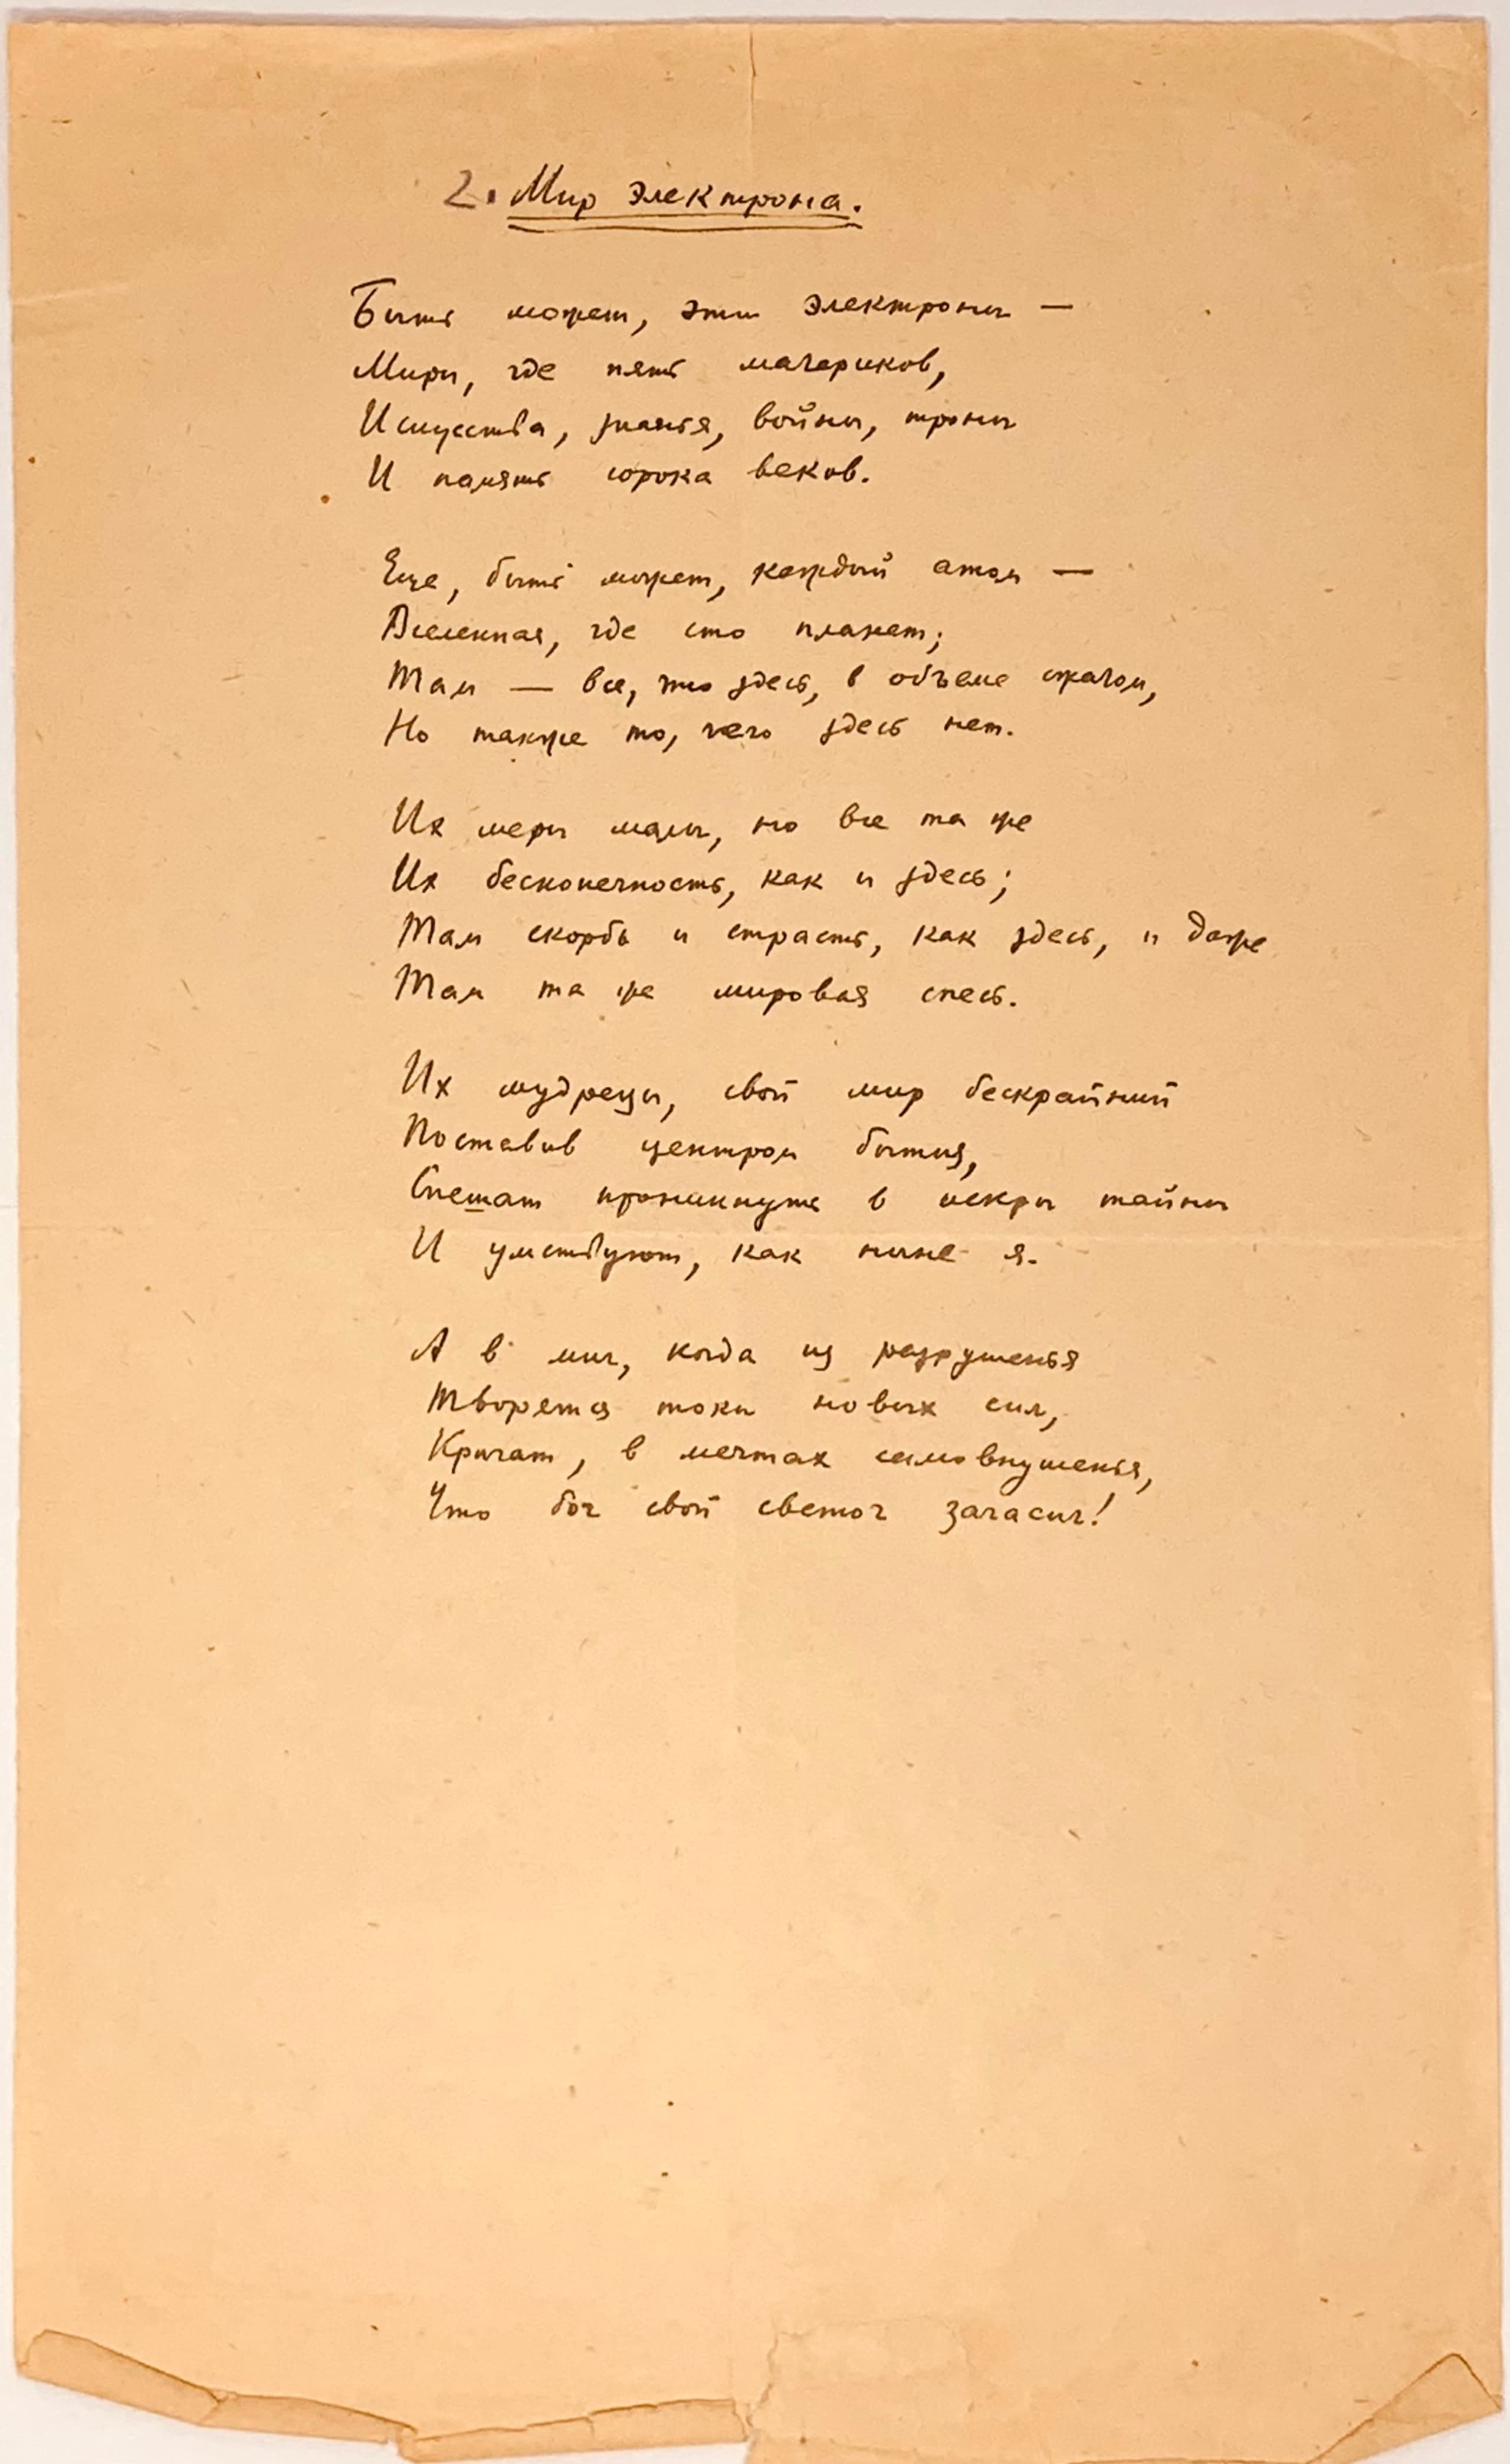 2. Мир электрона.
Быть может, эти электроны —
Миры, где пять материков,
Искусства, знанья, войны, троны
И память сорока веков.
Еще, быть может, каждый атом —
Вселенная, где сто планет;
Там — все, что здесь, в объеме сжатом,
Но также то, чего здесь нет.
Их меры малы, но все та же
Их бесконечность, как и здесь;
Там скорбь и страсть, как здесь, и даже
Там та же мировая спесь.
Их мудрецы, свой мир бескрайний
Поставив центром бытия,
Спешат проникнуть в искры тайны
И умствуют, как ныне я.
А в миг, когда из разрушенья
Творятся токи новых сил,
Кричат, в мечтах самовнушенья,
Что бог свой светоч загасил!